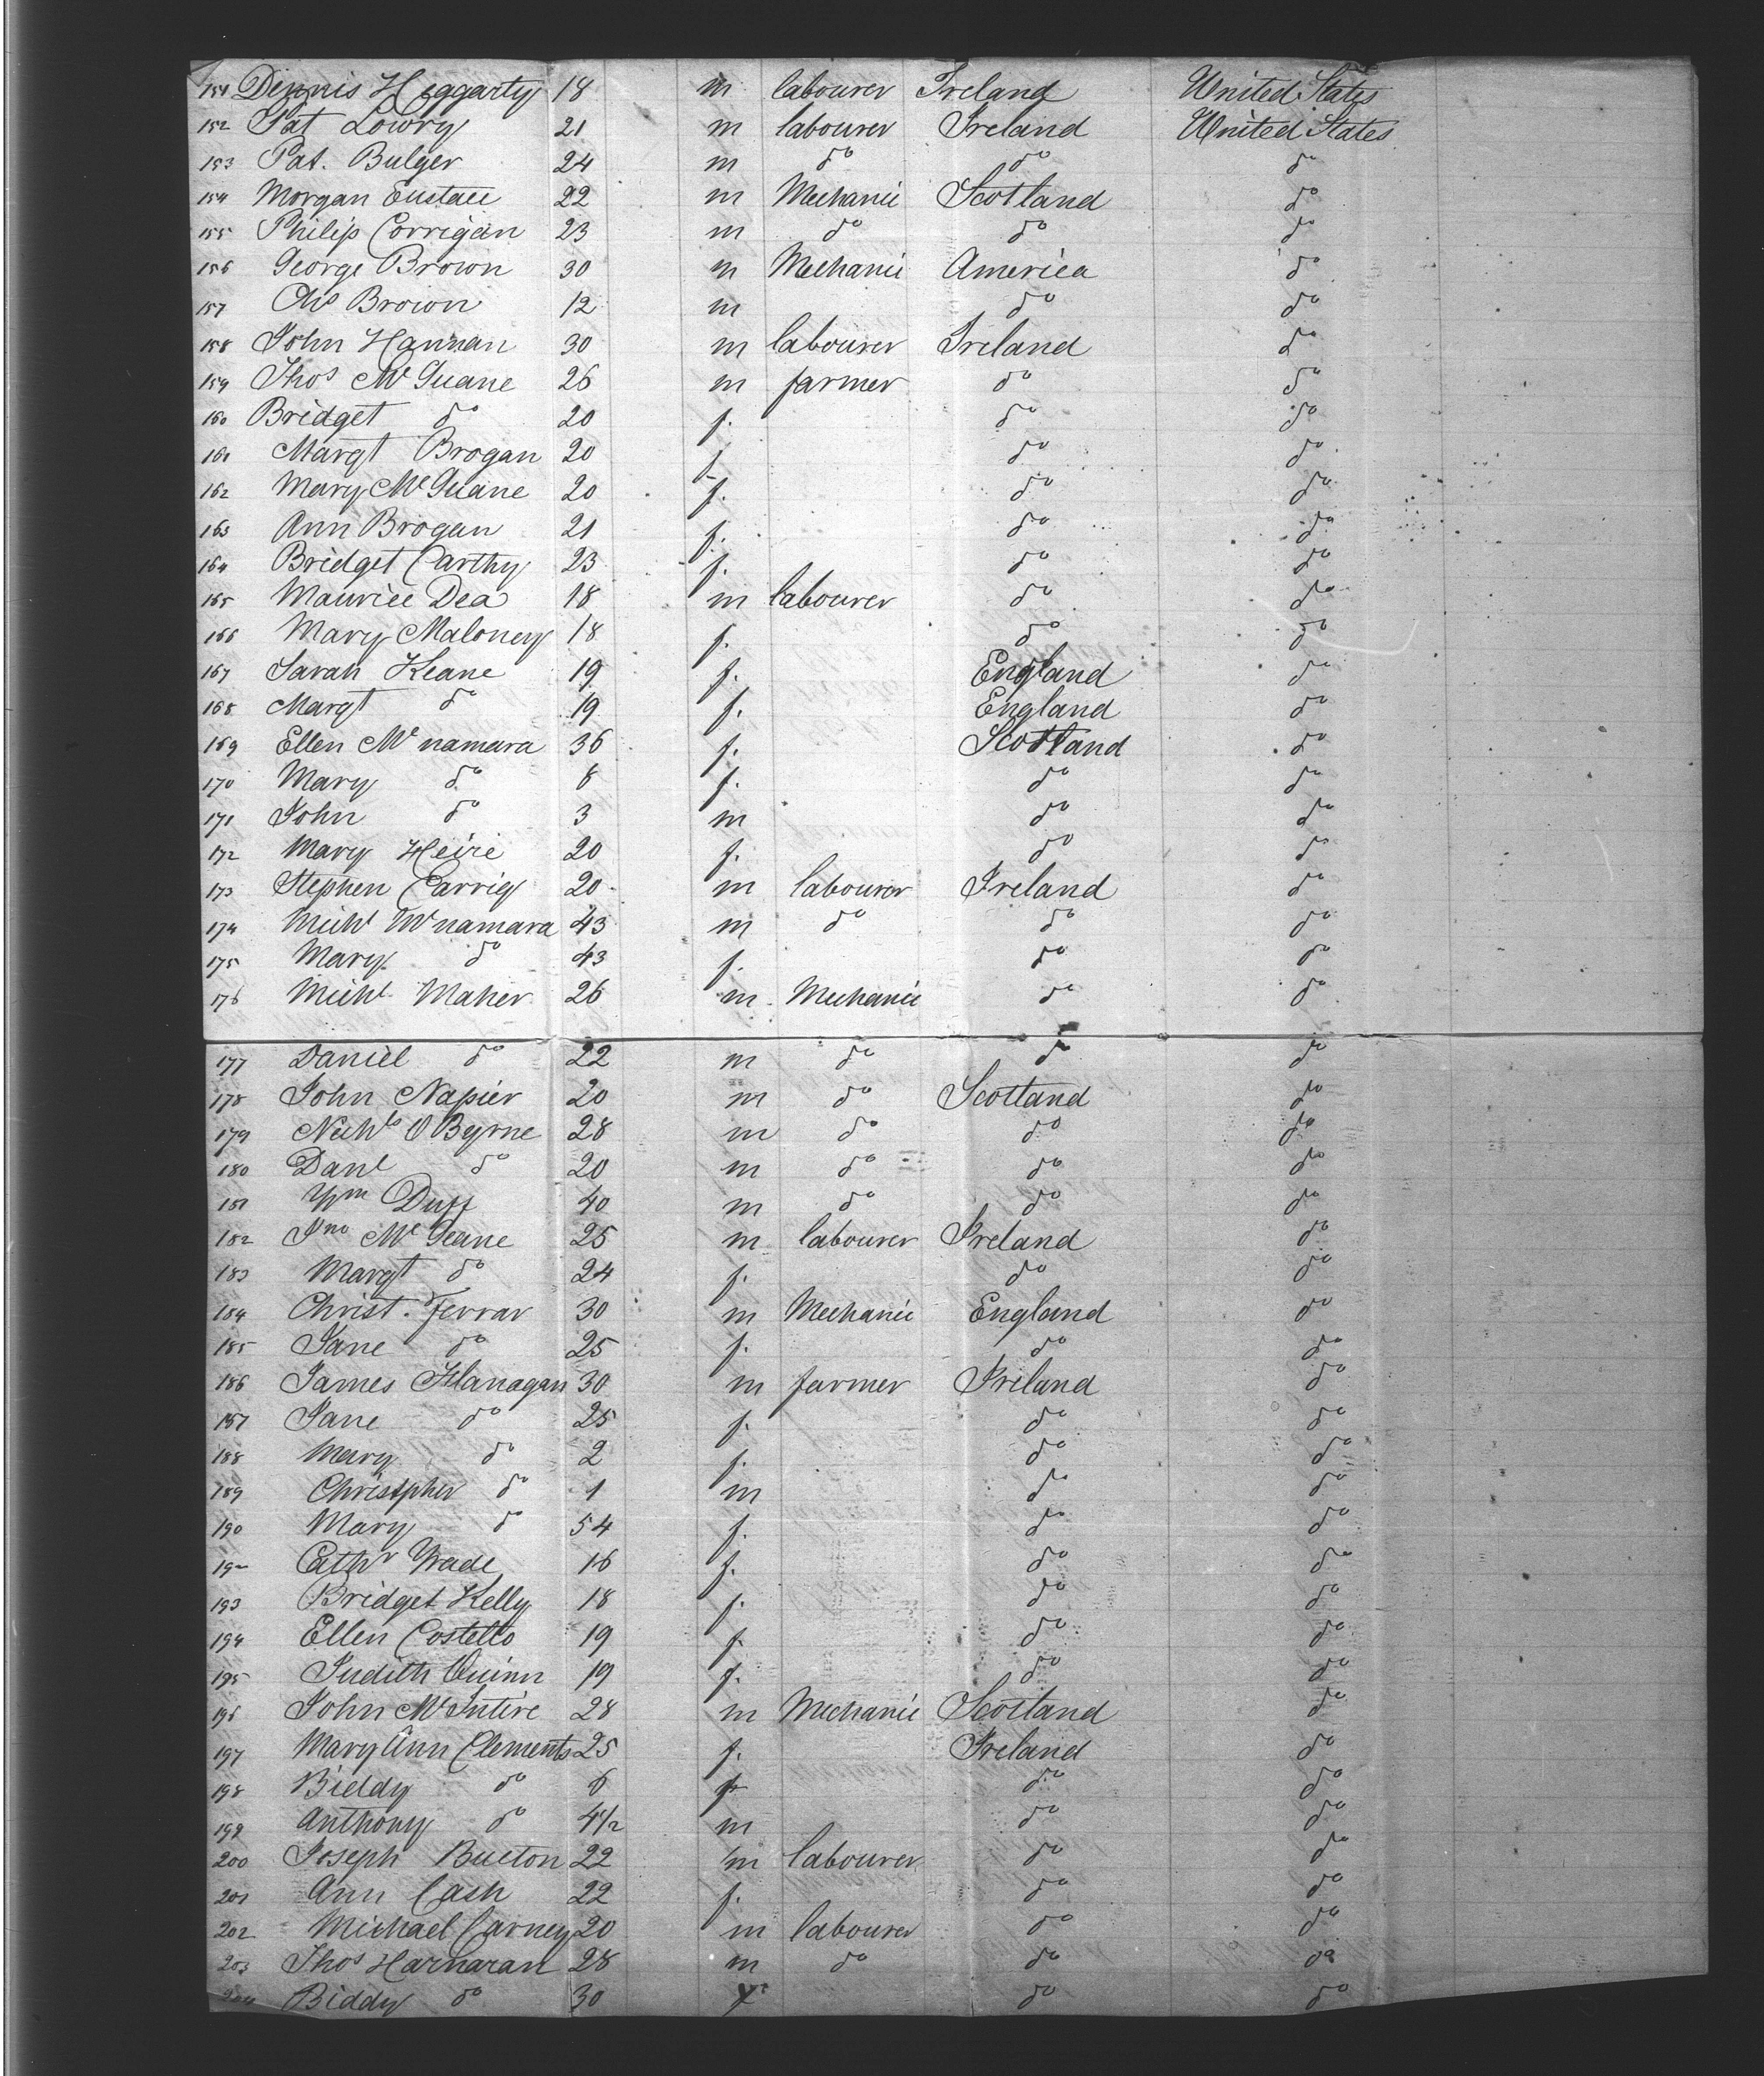 151 Dennis Heggarty 18 m labourer Ireland United States
152 Pat Lowry 21 m labourer Ireland United States
153 Pat. Bulger 24 m do do do
154 Morgan Eustace 22 m Mechanic Scotland do
155 Philip Corrigan 23 m do do do
156 George Brown 30 m Mechanic America do
157 Chs Brown 12 m do do
158 John Hannan 30 m labourer Ireland do
159 Thos McGuane 26 m farmer do do
160 Bridget do 20 f. do do
161 Margt Brogan 20 f do do
162 Mary McGuane 20 f. do do
163 Ann Brogan 21 f. do do
164 Bridget Carthy 23 f. do do
165 Maurice Dea 18 m labourer do do
166 Mary Maloney 18 f. do do
167 Sarah Keane 19 f. England do
168 Margt do 19 f. England do
169 Ellen Mcnamara 36 f. Scotland do
170 Mary do 8 f. do do
171 John do 3 m do do
172 Mary Heire 20 f. do do
173 Stephen Carrig 20 m labourer Ireland do
174 Michl Mcnamara 43 m do do do
175 Mary do 43 f. do do
176 Michl Maher 26 m Mechanic do do
177 Daniel do 22 m do do do
178 John Napier 20 m do Scotland do
179 Nichls O Byrne 28 m do do do
180 Danl do 20 m do do do
181 Wm Duff 40 m do do do
182 Jno McGeane 25 m labourer Ireland do
183 Margt do 24 f. do do
184 Christ. Ferrar 30 m Mechanic England do
185 Jane do 25 f. do do
186 James Flanagan 30 m farmer Ireland do
187 Jane do 25 f. do do
188 Mary do 2 f. do do
189 Christpher do 1 m do do
190 Mary do 54 f. do do
192 Cathr Wade 16 f. do do
193 Bridget Kelly 18 f. do do
194 Ellen Costello 19 f. do do
195 Judith Quinn 19 f. do do
196 John McIntire 28 m Mechanic Scotland do
197 Mary Ann Clements 25 f. Ireland do
198 Biddy do 6 f do do
199 Anthony do 4 1/2 m do do
200 Joseph Bucton 22 m labourer do do
201 Ann Cash 22 f. do do
202 Michael Carney 20 m labourer do do
203 Thos Harnaran 28 m do do do
204 Biddy do 30 f do do